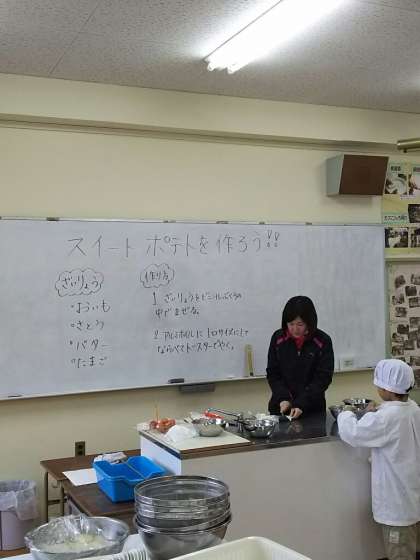 スイートポテトを作ろう!!
ざいりょう
・おいも
・さとう
・バター
・たまご
作り方
1. ざいりょうをビニールぶくろの
中でまぜる。
2. アルミホイルに1口サイズにして
ならべてトースターでやく。